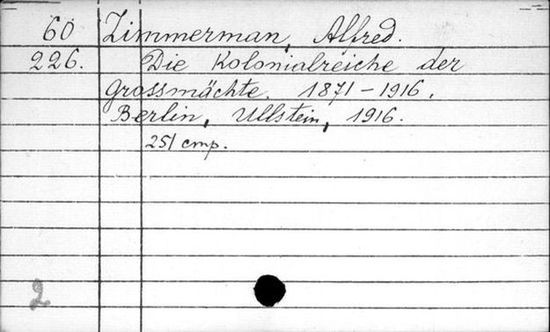 60 Zimmerman, Alfred.
226. Die Kolonialreiche der
Grossmächte 1871 – 1916.
Berlin, Ullstein, 1916.
251 cmp.
2